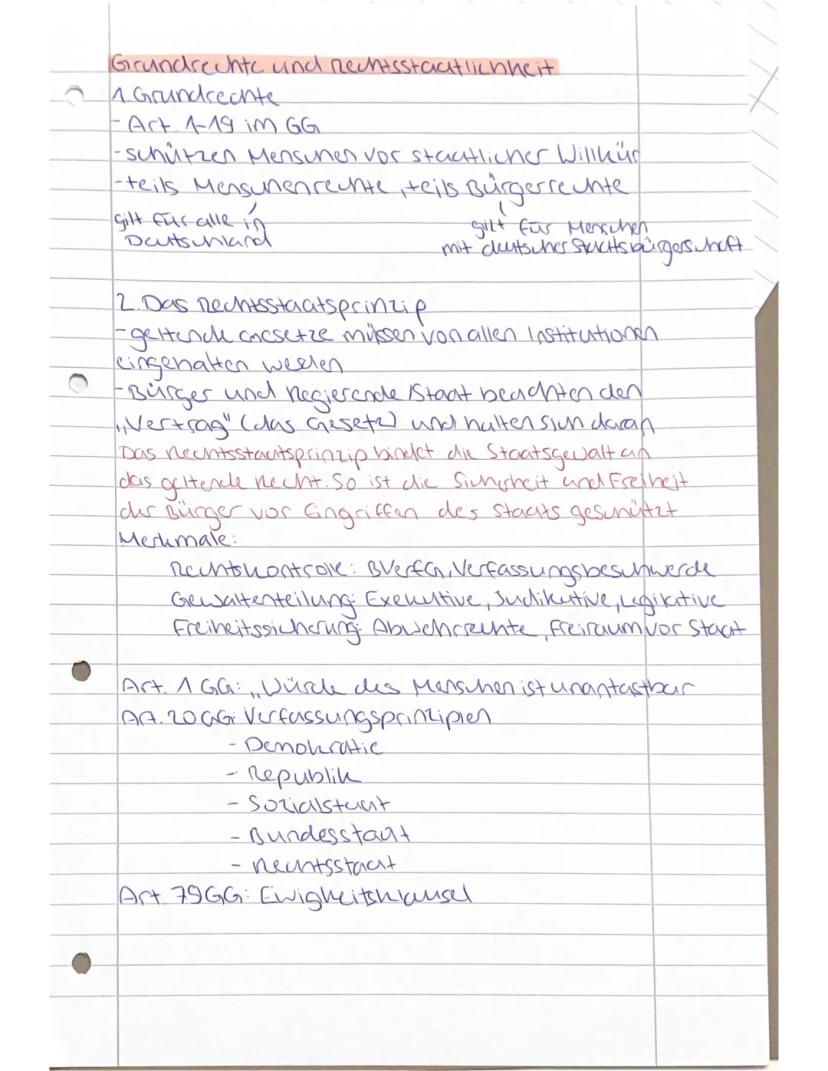 Grundrechte und Rechtsstaatlichkeit
1. Grundrechte
- Art. 1-19 im GG
- schützen Menschen vor staatlicher Willkür
- teils Menschenrechte, teils Bürgerrechte
gilt für alle in
Deutschland
gilt für Menschen
mit deutscher Staatsbürgerschaft
2. Das Rechtsstaatsprinzip
- geltende Gesetze müssen von allen Institutionen
eingehalten werden
- Bürger und Regierende/Staat beachten den
„Vertrag" (das Gesetz) und halten sich daran
Das Rechtsstaatsprinzip bindet die Staatsgewalt an
das geltende Recht. So ist die Sicherheit und Freiheit
der Bürger vor Eingriffen des Staats geschützt
Merkmale:
Rechtskontrolle: BVerfG, Verfassungsbeschwerde
Gewaltenteilung: Exekutive, Judikative, Legikative
Freiheitssicherung: Abwehrrechte, Freiraum vor Staat
Art. 1 GG: „Würde des Menschen ist unantastbar
Art. 20 GG: Verfassungsprinzipien
- Demokratie
- Republik
- Sozialstaat
- Bundesstaat
- Rechtsstaat
Art. 79 GG: Ewigkeitsklausel